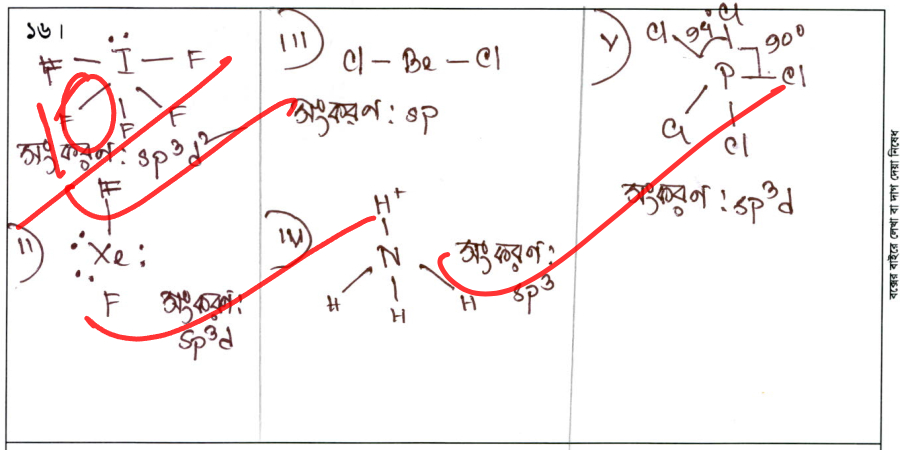 ১৬।
I
F — I — F
F F F
সংকরণ: sp³d²
II)
F
:Xe:
F
সংকরণ:
sp³d
III)
Cl — Be — Cl
সংকরণ: sp
IV)
H⁺
N
H H H
সংকরণ:
sp³
V)
Cl Cl 90°
P — Cl
Cl Cl
সংকরণ: sp³d
বক্সের বাইরে লেখা বা দাগ দেয়া নিষেধ